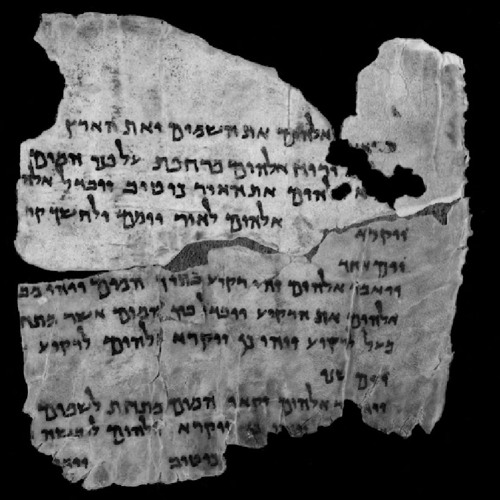 אלהים את השמים ואת הארץ
ורוח אלהים מרחפת על פני המים
אלהים את האור כי טוב ויבדל אלה
אלהים לאור יומם ולחשך קר
יום אחד
ויאמר אלהים יהי רקיע בתוך המים ויהי מב
אלהים את הרקיע ויבדל בין המים אשר מתח
מעל לרקיע ויהי כן ויקרא אלהים לרקיע
יום שני
אלהים יקאו המים מתחת לשמים
כן ויקרא אלהים ליבשה
כי טוב